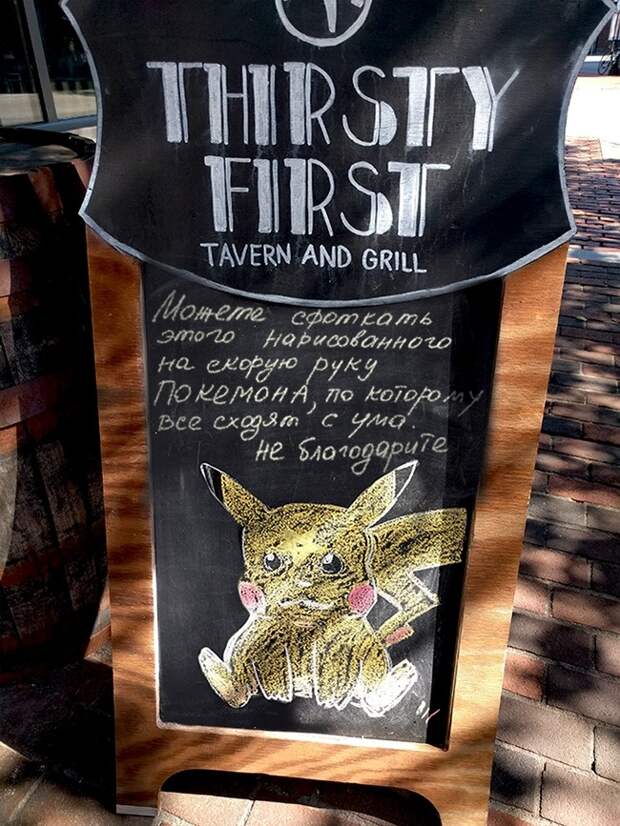 THIRSTY
FIRST
TAVERN AND GRILL
Можете сфоткать
этого нарисованного
на скорую руку
ПОКЕМОНА, по которому
все сходят с ума.
Не благодарите